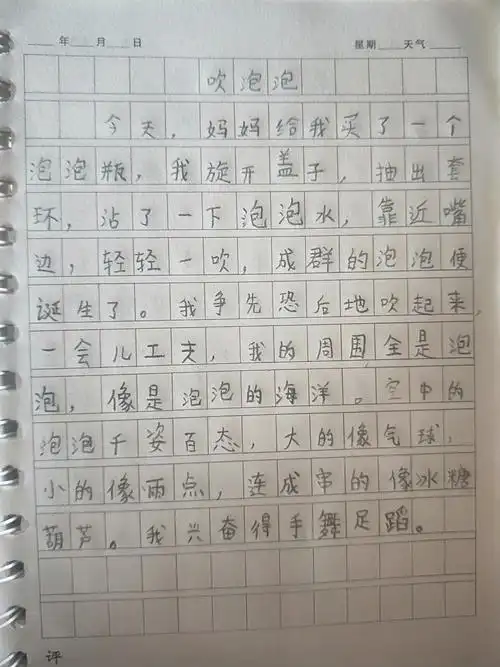 年 月 日 星期 天气
吹泡泡
今天，妈妈给我买了一个
泡泡瓶，我旋开盖子，抽出套
环，沾了一下泡泡水，靠近嘴
边，轻轻一吹，成群的泡泡便
诞生了。我争先恐后地吹起来，
一会儿工夫，我的周围全是泡
泡，像是泡泡的海洋。空中的
泡泡千姿百态，大的像气球，
小的像雨点，连成串的像冰糖
葫芦。我兴奋得手舞足蹈。
评